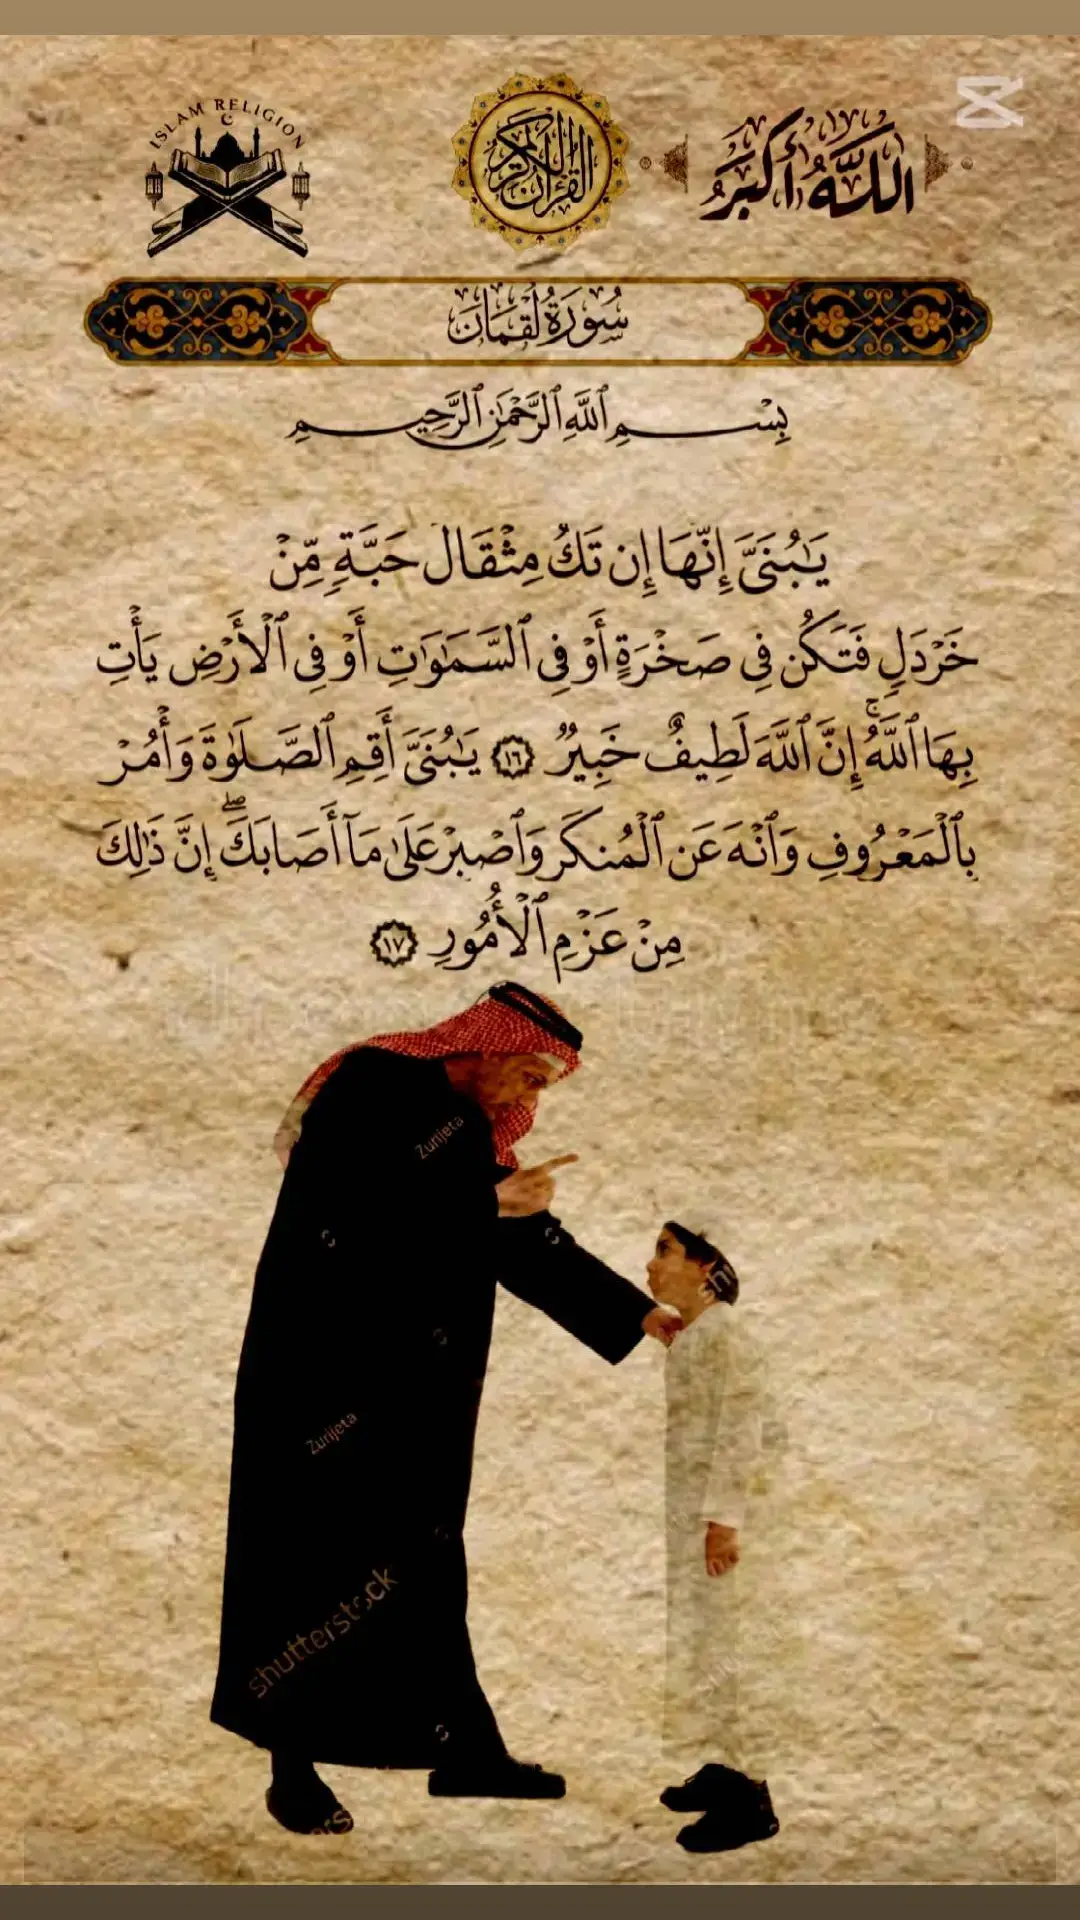 ISLAM RELIGION
القرآن الكريم
اللَّهُ أَكْبَرُ
سُورَةُ لُقْمَانَ
بِسْمِ ٱللَّهِ ٱلرَّحْمَٰنِ ٱلرَّحِيمِ
يَٰبُنَىَّ إِنَّهَا إِن تَكُ مِثْقَالَ حَبَّةٍ مِّنْ
خَرْدَلٍ فَتَكُن فِى صَخْرَةٍ أَوْ فِى ٱلسَّمَٰوَٰتِ أَوْ فِى ٱلْأَرْضِ يَأْتِ
بِهَا ٱللَّهُ ۚ إِنَّ ٱللَّهَ لَطِيفٌ خَبِيرٌ ١٦ يَٰبُنَىَّ أَقِمِ ٱلصَّلَوٰةَ وَأْمُرْ
بِٱلْمَعْرُوفِ وَٱنْهَ عَنِ ٱلْمُنكَرِ وَٱصْبِرْ عَلَىٰ مَآ أَصَابَكَ ۖ إِنَّ ذَٰلِكَ
مِنْ عَزْمِ ٱلْأُمُورِ ١٧
Zurijeta
shu
Zurijeta
shutterstock